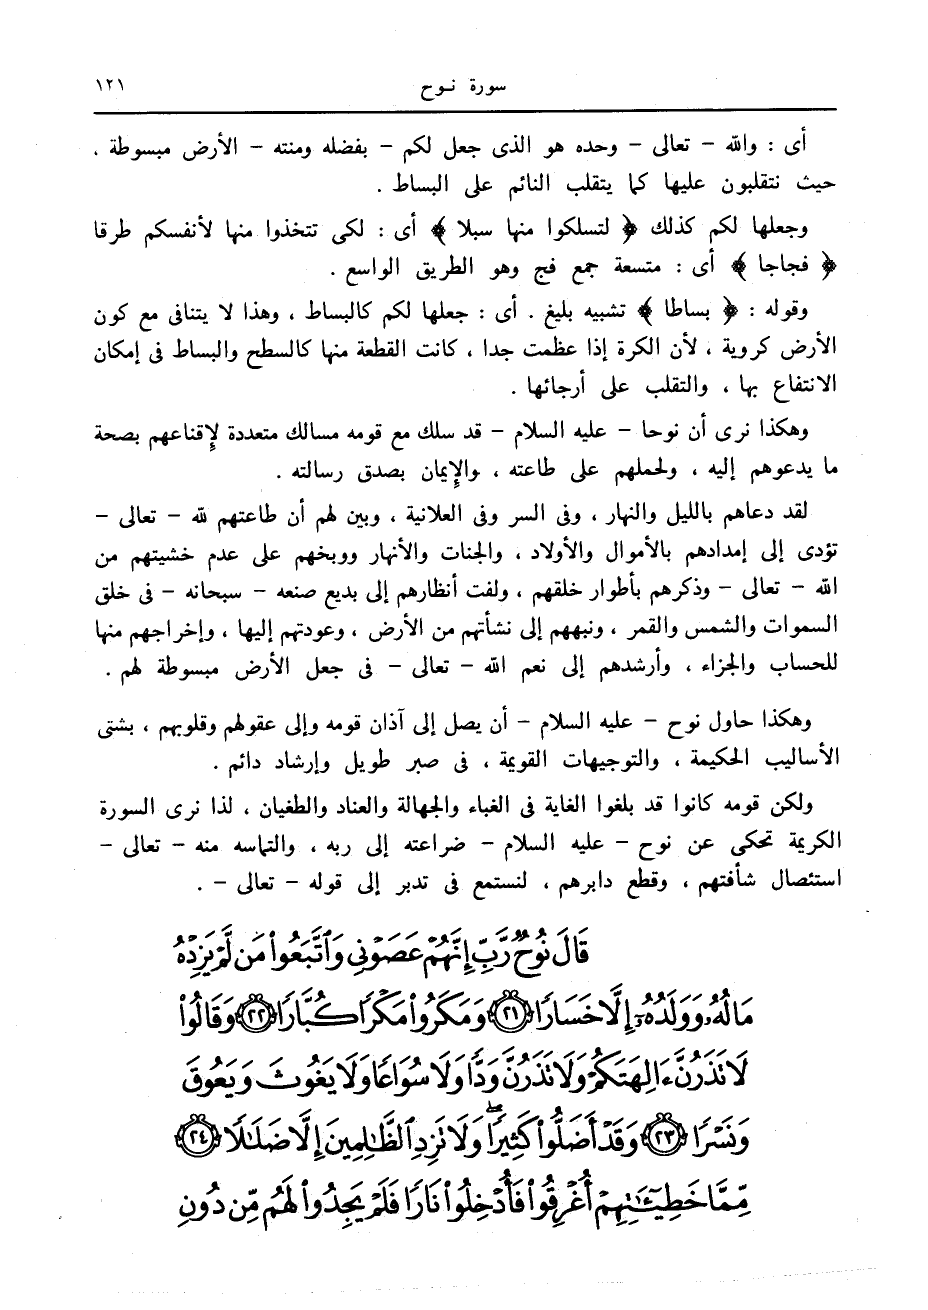 سورة نوح ١٢١
أى : والله – تعالى – وحده هو الذى جعل لكم – بفضله ومنته – الأرض مبسوطة ،
حيث نتقلبون عليها كما يتقلب النائم على البساط .
وجعلها لكم كذلك ﴿ لتسلكوا منها سبلا ﴾ أى : لكى تتخذوا منها لأنفسكم طرقا
﴿ فجاجا ﴾ أى : متسعة جمع فج وهو الطريق الواسع .
وقوله : ﴿ بساطا ﴾ تشبيه بليغ . أى : جعلها لكم كالبساط ، وهذا لا يتنافى مع كون
الأرض كروية ، لأن الكرة إذا عظمت جدا ، كانت القطعة منها كالسطح والبساط فى إمكان
الانتفاع بها ، والتقلب على أرجائها .
وهكذا نرى أن نوحا – عليه السلام – قد سلك مع قومه مسالك متعددة لإقناعهم بصحة
ما يدعوهم إليه ، ولحملهم على طاعته ، والإيمان بصدق رسالته .
لقد دعاهم بالليل والنهار ، وفى السر وفى العلانية ، وبين لهم أن طاعتهم لله – تعالى –
تؤدى إلى إمدادهم بالأموال والأولاد ، والجنات والأنهار ووبخهم على عدم خشيتهم من
الله – تعالى – وذكرهم بأطوار خلقهم ، ولفت أنظارهم إلى بديع صنعه – سبحانه – فى خلق
السموات والشمس والقمر ، ونبههم إلى نشأتهم من الأرض ، وعودتهم إليها ، وإخراجهم منها
للحساب والجزاء ، وأرشدهم إلى نعم الله – تعالى – فى جعل الأرض مبسوطة لهم .
وهكذا حاول نوح – عليه السلام – أن يصل إلى آذان قومه وإلى عقولهم وقلوبهم ، بشتى
الأساليب الحكيمة ، والتوجيهات القويمة ، فى صبر طويل وإرشاد دائم .
ولكن قومه كانوا قد بلغوا الغاية فى الغباء والجهالة والعناد والطغيان ، لذا نرى السورة
الكريمة تحكى عن نوح – عليه السلام – ضراعته إلى ربه ، والتماسه منه – تعالى –
استئصال شأفتهم ، وقطع دابرهم ، لنستمع فى تدبر إلى قوله – تعالى – .
قَالَ نُوحٌ رَّبِّ إِنَّهُمْ عَصَوْنِى وَٱتَّبَعُوا۟ مَن لَّمْ يَزِدْهُ
مَالُهُۥ وَوَلَدُهُۥٓ إِلَّا خَسَارًا ﴿٢١﴾ وَمَكَرُوا۟ مَكْرًا كُبَّارًا ﴿٢٢﴾ وَقَالُوا۟
لَا تَذَرُنَّ ءَالِهَتَكُمْ وَلَا تَذَرُنَّ وَدًّا وَلَا سُوَاعًا وَلَا يَغُوثَ وَيَعُوقَ
وَنَسْرًا ﴿٢٣﴾ وَقَدْ أَضَلُّوا۟ كَثِيرًا ۖ وَلَا تَزِدِ ٱلظَّـٰلِمِينَ إِلَّا ضَلَـٰلًا ﴿٢٤﴾
مِّمَّا خَطِيٓـَٔـٰتِهِمْ أُغْرِقُوا۟ فَأُدْخِلُوا۟ نَارًا فَلَمْ يَجِدُوا۟ لَهُم مِّن دُونِ